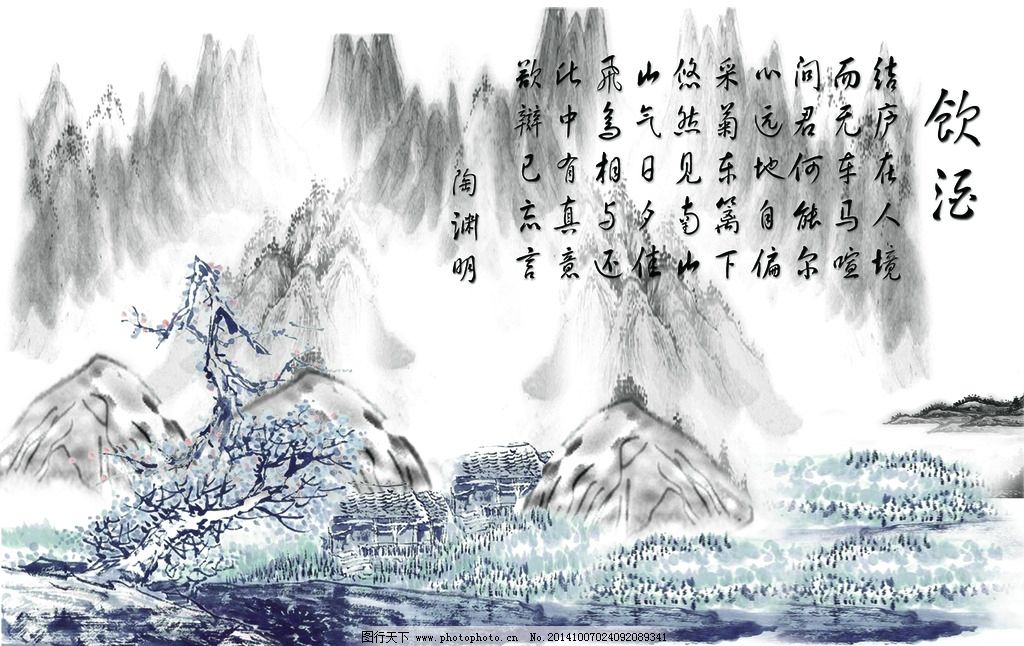 飲酒
结庐在人境
而无车马喧
问君何能尔
心远地自偏
采菊东篱下
悠然见南山
山气日夕佳
飛鸟相与还
此中有真意
欲辩已忘言
陶渊明
图行天下 www.photophoto.cn No.20141007024092089341